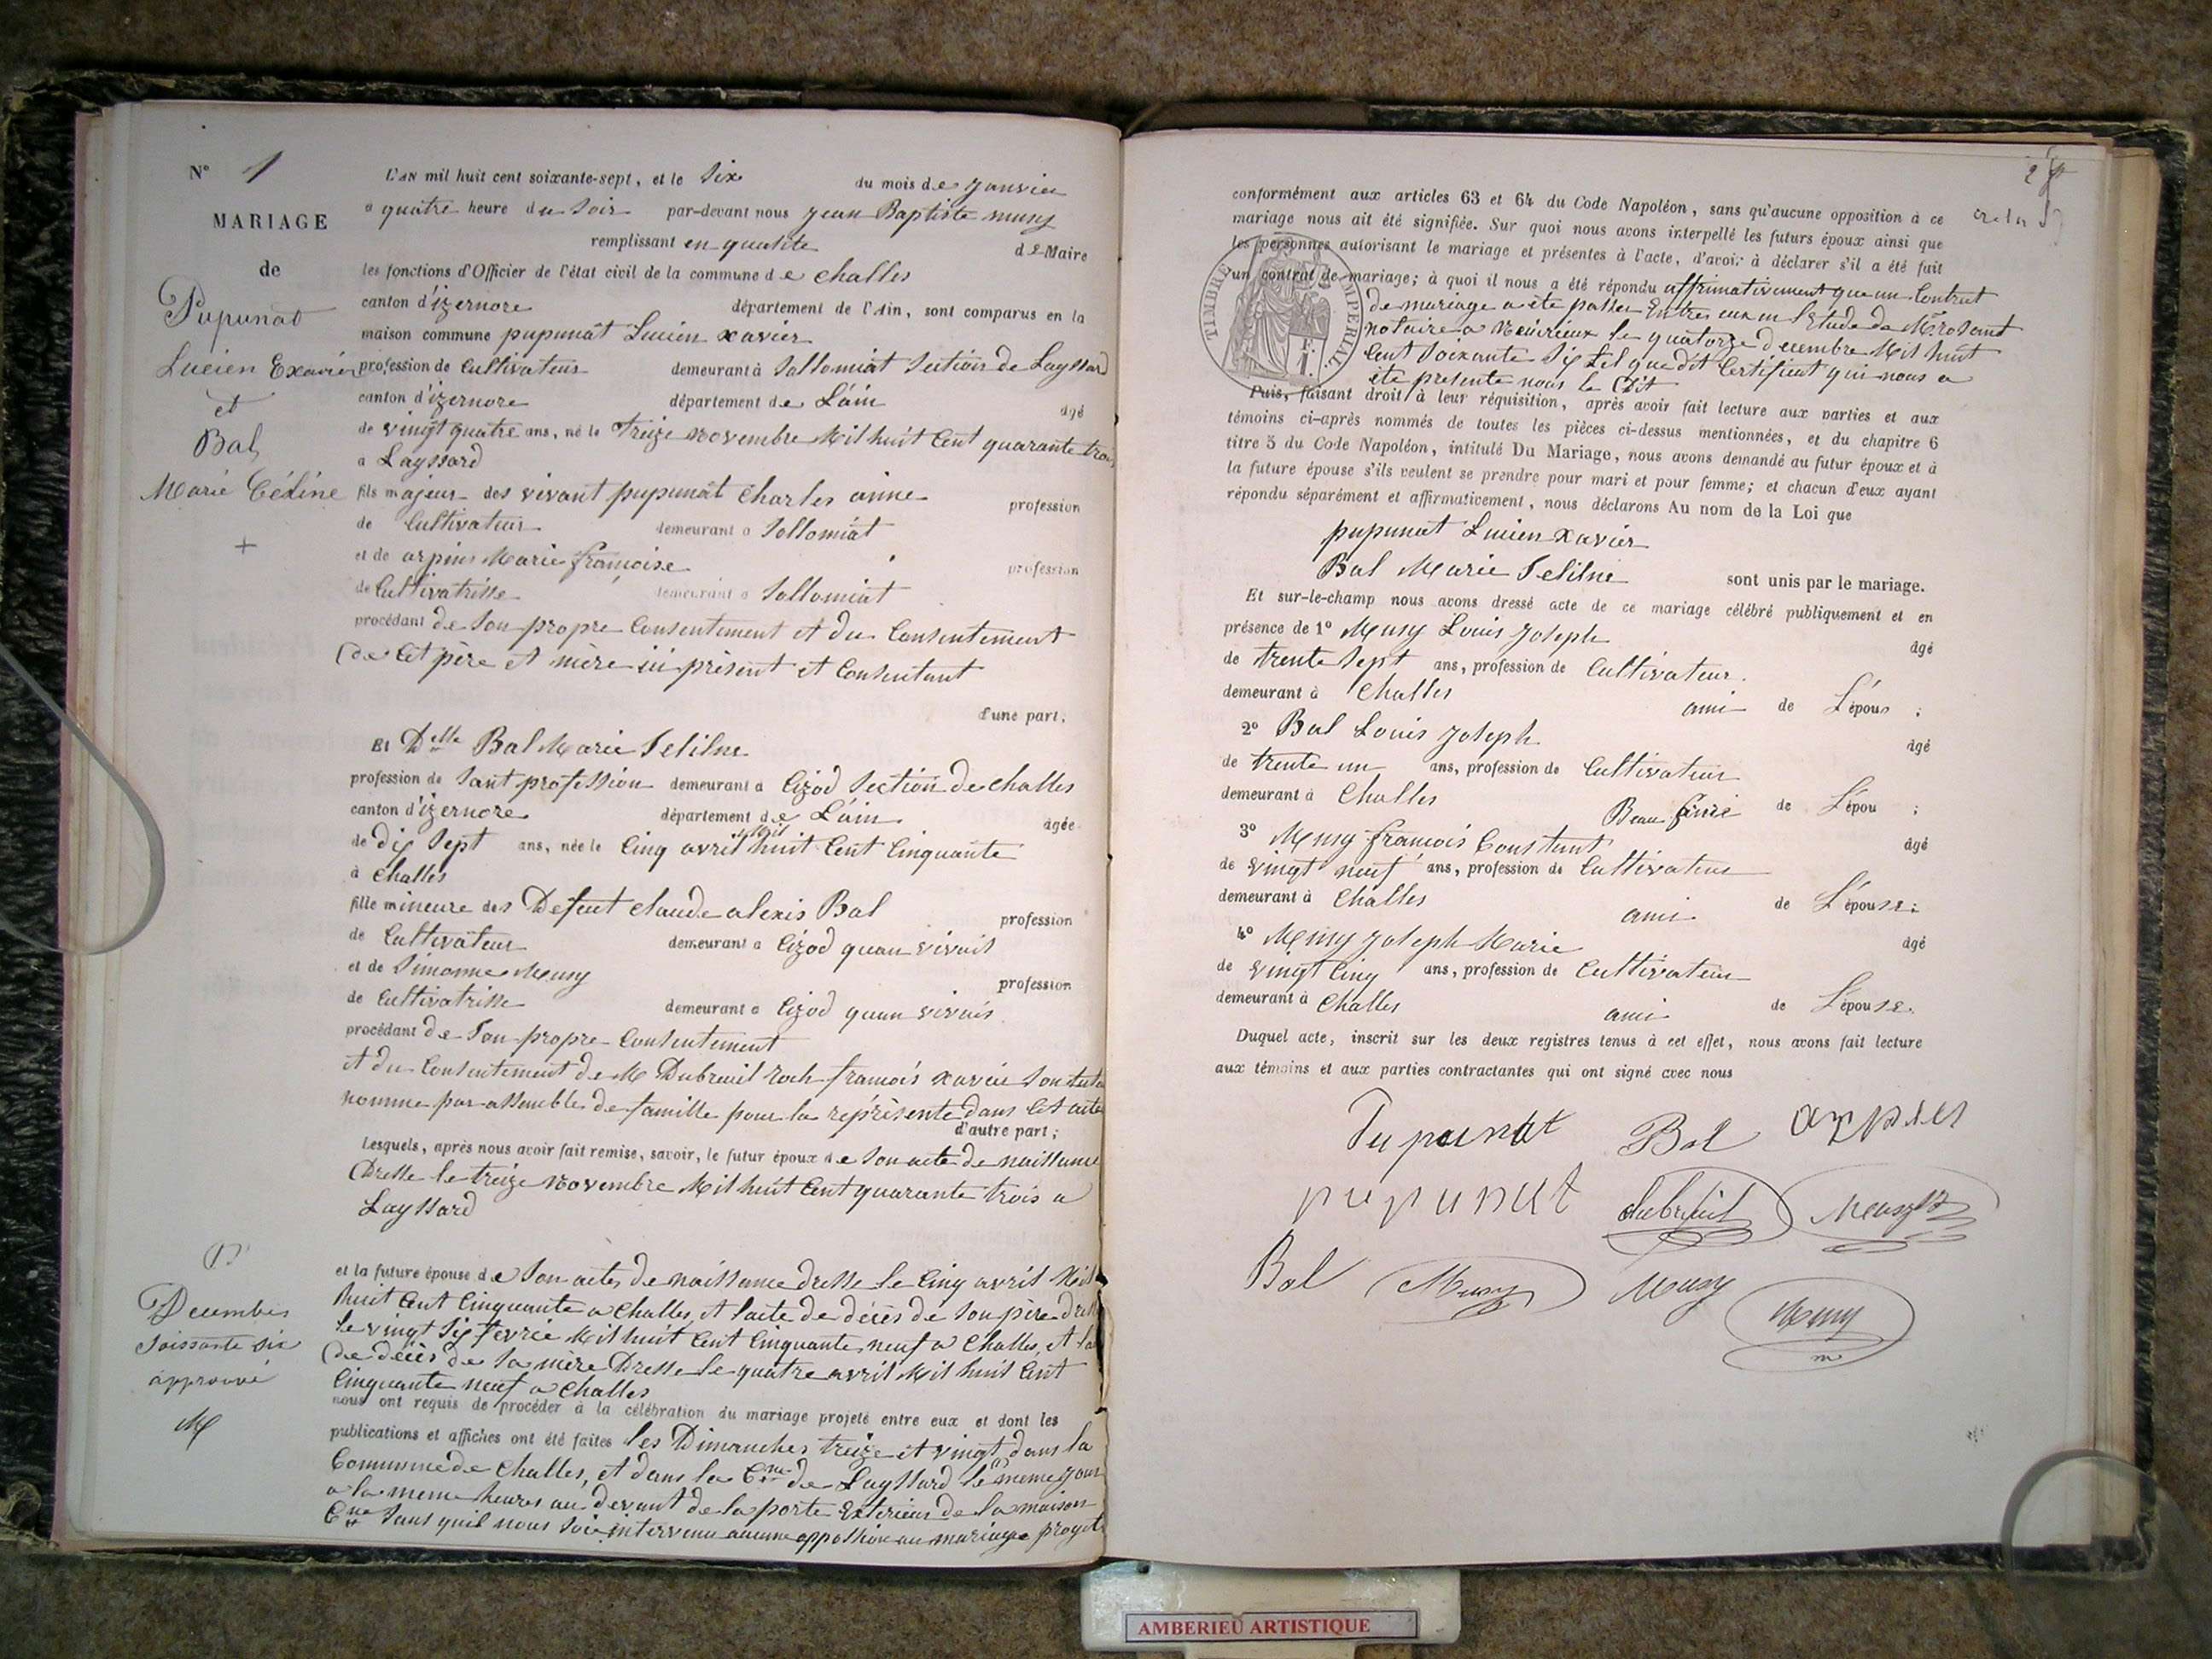 N° 1
MARIAGE
de
Pupunat
Lucien Exavier
et
Bal
Marie Céline
+
L'AN mil huit cent soixante-sept, et le Six du mois de janvier
a quatre heure du Soir par-devant nous jean Baptiste musy
remplissant en qualité de Maire
les fonctions d'Officier de l'état civil de la commune de challes
canton d'izernore département de l'Ain, sont comparus en la
maison commune pupunat Lucien xavier
profession de Cultivateur demeurant à Sollomiat Section de Layssard
canton d'izernore département de L'ain âgé
de vingt quatre ans, né le treize novembre Mil huit Cent quarante trois
a Layssard
fils majeur des vivant pupunat Charles ainne profession
de Cultivateur demeurant a Sollomiat
et de arpins Marie françoise profession
de Cultivatrisse demeurant a Sollomiat
procédant de Son propre Consentement et du Consentement
de Cet père et mère ici présent et Consentant
d'une part,
Et Delle Bal Marie Seliline
profession de Sant profession demeurant a Cizod Section de challes
canton d'izernore département de L'ain âgée
de dix Sept ans, née le Cinq avril Mil huit Cent Cinquante
à Challes
fille mineure des Defeut claude alexis Bal profession
de Cultivateur demeurant a Cizod quan vivait
et de Simonne Musy profession
de Cultivatrisse demeurant a Cizod quan vivais
procédant de Son propre Consentement
et du Consentement de M Dubreuil roch françois xavier Son tuteu
nomme par assemble de famille pour la représente dans Cet acte
d'autre part;
Lesquels, après nous avoir fait remise, savoir, le futur époux de Son acte de naissance
Dresse le treize novembre Mil huit Cent quarante trois a
Layssard
et la future épouse de Son actes de naissance dresse le Cinq avril Mil
huit Cent Cinquante a Challes, et lacte de décès de Son père dress
le vingt Six fevrie Mil huit Cent Cinquante neuf a Challes, et la
de décès de Sa mère Dresse le quatre avril Mil huit Cent
Cinquante neuf a Challes
nous ont requis de procéder à la célébration du mariage projeté entre eux et dont les
publications et affiches ont été faites les Dimanches treize et vingt (1) dans la
Commune de Challes, et dans la Cne de Layssard le meme jour
a la meme heures au devant de la porte Exterieur de la maison
Cne Sans quil nous Soie intervenu aucune oppossion au mariage projete
(1)
Decembre
Soissante six
approuvé
M
2
conformément aux articles 63 et 64 du Code Napoléon, sans qu'aucune opposition à ce
mariage nous ait été signifiée. Sur quoi nous avons interpellé les futurs époux ainsi que
les personnes autorisant le mariage et présentes à l'acte, d'avoir à déclarer s'il a été fait
un contrat de mariage; à quoi il nous a été répondu affirmativement que un Contrat
de mariage a éte passer Entres eux en l'Etude de
notaire a le quatorze decembre Mil huit
Cent Soixante Six tel que dit Certificat qui nous a
éte presente nous la
TIMBRE IMPERIAL
Puis, faisant droit à leur réquisition, après avoir fait lecture aux parties et aux
témoins ci-après nommés de toutes les pièces ci-dessus mentionnées, et du chapitre 6
titre 5 du Code Napoléon, intitulé Du Mariage, nous avons demandé au futur époux et à
la future épouse s'ils veulent se prendre pour mari et pour femme; et chacun d'eux ayant
répondu séparément et affirmativement, nous déclarons Au nom de la Loi que
pupunat Lucien xavier
Bal Marie Seliline sont unis par le mariage.
Et sur-le-champ nous avons dressé acte de ce mariage célébré publiquement et en
présence de 1° Musy Louis joseph âgé
de trente Sept ans, profession de Cultivateur.
demeurant à Challes ami de L'épous ;
2° Bal Louis joseph âgé
de trente un ans, profession de Cultivateur
demeurant à Challes Beau frere de L'épou ;
3° Musy françois Constant âgé
de vingt neuf ans, profession de Cultivateur
demeurant à Challes ami de L'épouse;
4° Musy joseph Marie âgé
de vingt Cinq ans, profession de Cultivateur
demeurant à Challes ami de L'épouse.
Duquel acte, inscrit sur les deux registres tenus à cet effet, nous avons fait lecture
aux témoins et aux parties contractantes qui ont signé avec nous
Pupunat Bal arpien
pupunat dubreuil Musy
Bal Musy Musy
Musy
AMBERIEU ARTISTIQUE